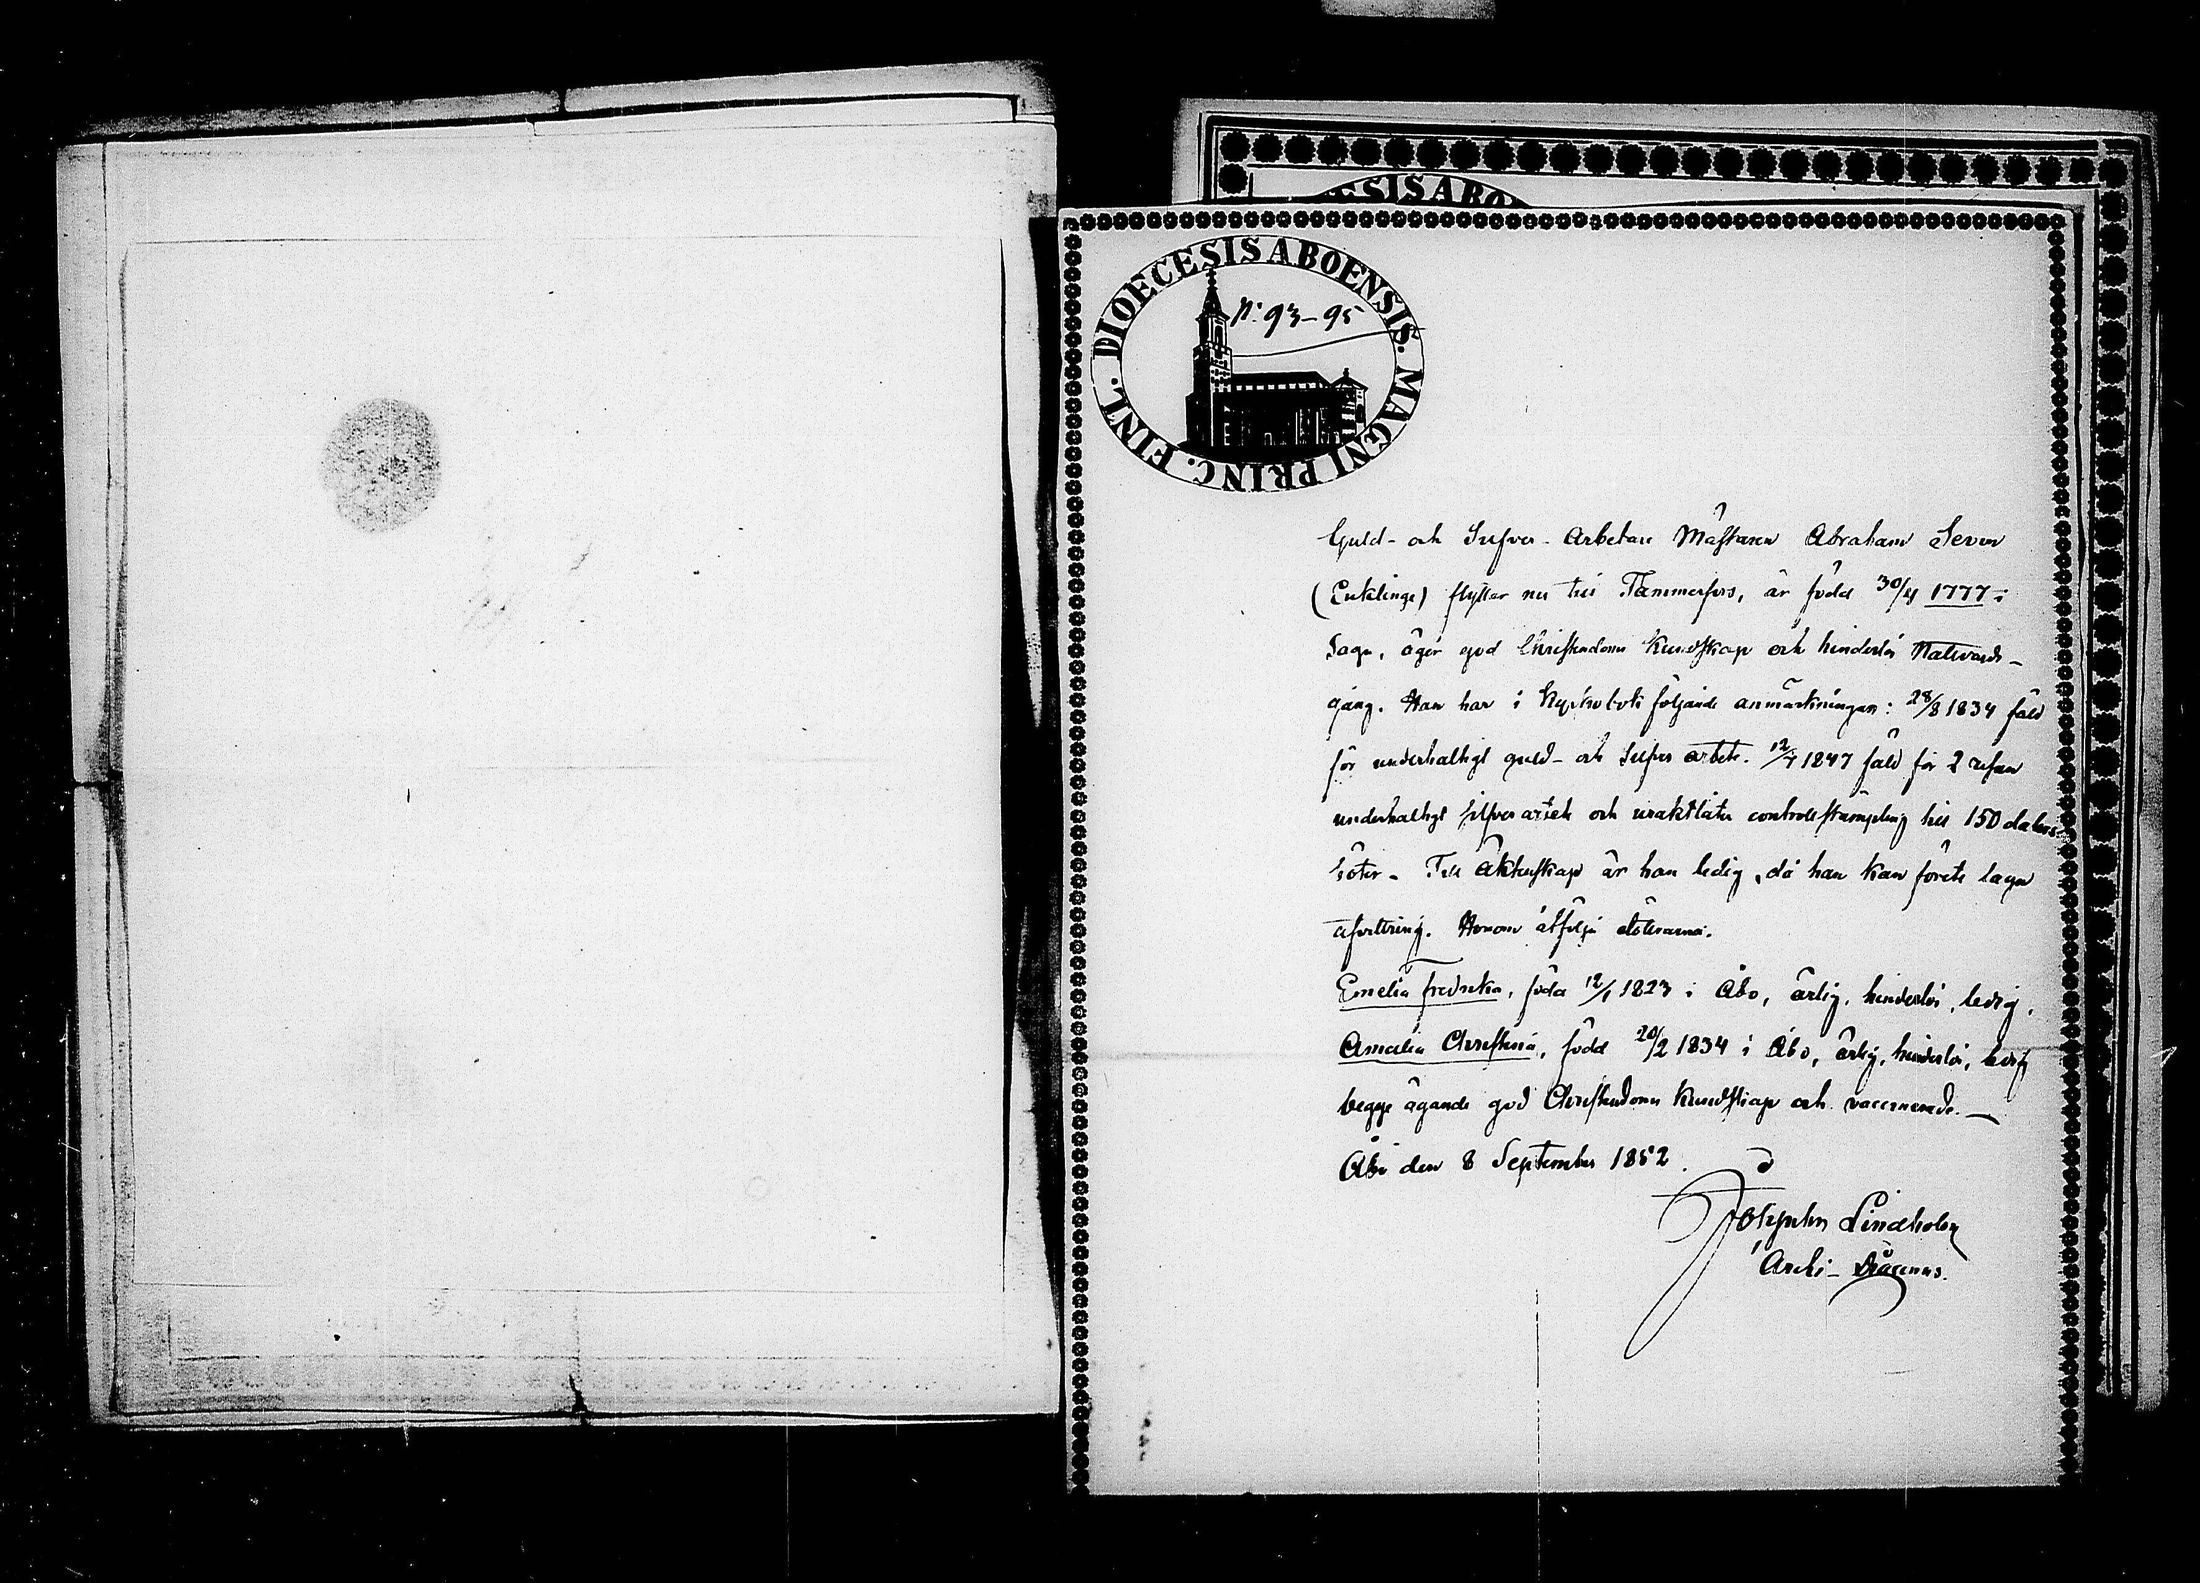 ESIS ABO
DIOECESIS ABOENSIS. MAGNI PRINC. FINL.
N: 93-95
Guld- och Silfver-Arbetare Mästaren Abraham Seven
(Enklinge) flyttar nu till Tammerfors, är född 30/4 1777 i
Sagu, äger god Christendoms Kundskap och hinderlös Nattvards-
gång. Han har i Kyrkobok följande anmärkningar: 28/8 1834 fäld
för underhaltigt guld- och Silfver arbete. 12/4 1847 fäld för 2 refvor
underhaltigt silfver arbete och uraktlåten controllstämpling till 150 dalers
böter. Till Äktenskap är han ledig, då han kan förete lagen
afvittring. Honom åtfölja döttrarna:
Emelia Fredrika, född 12/1 1823 i Åbo, ärlig, hinderlös, ledig,
Amalia Christina, född 20/2 1834 i Åbo, ärlig, hinderlös, ledig
begge ägande god Christendoms Kundskap och vaccinerade. —
Åbo den 8 September 1852.
Lindholm
Archi-Diaconus.